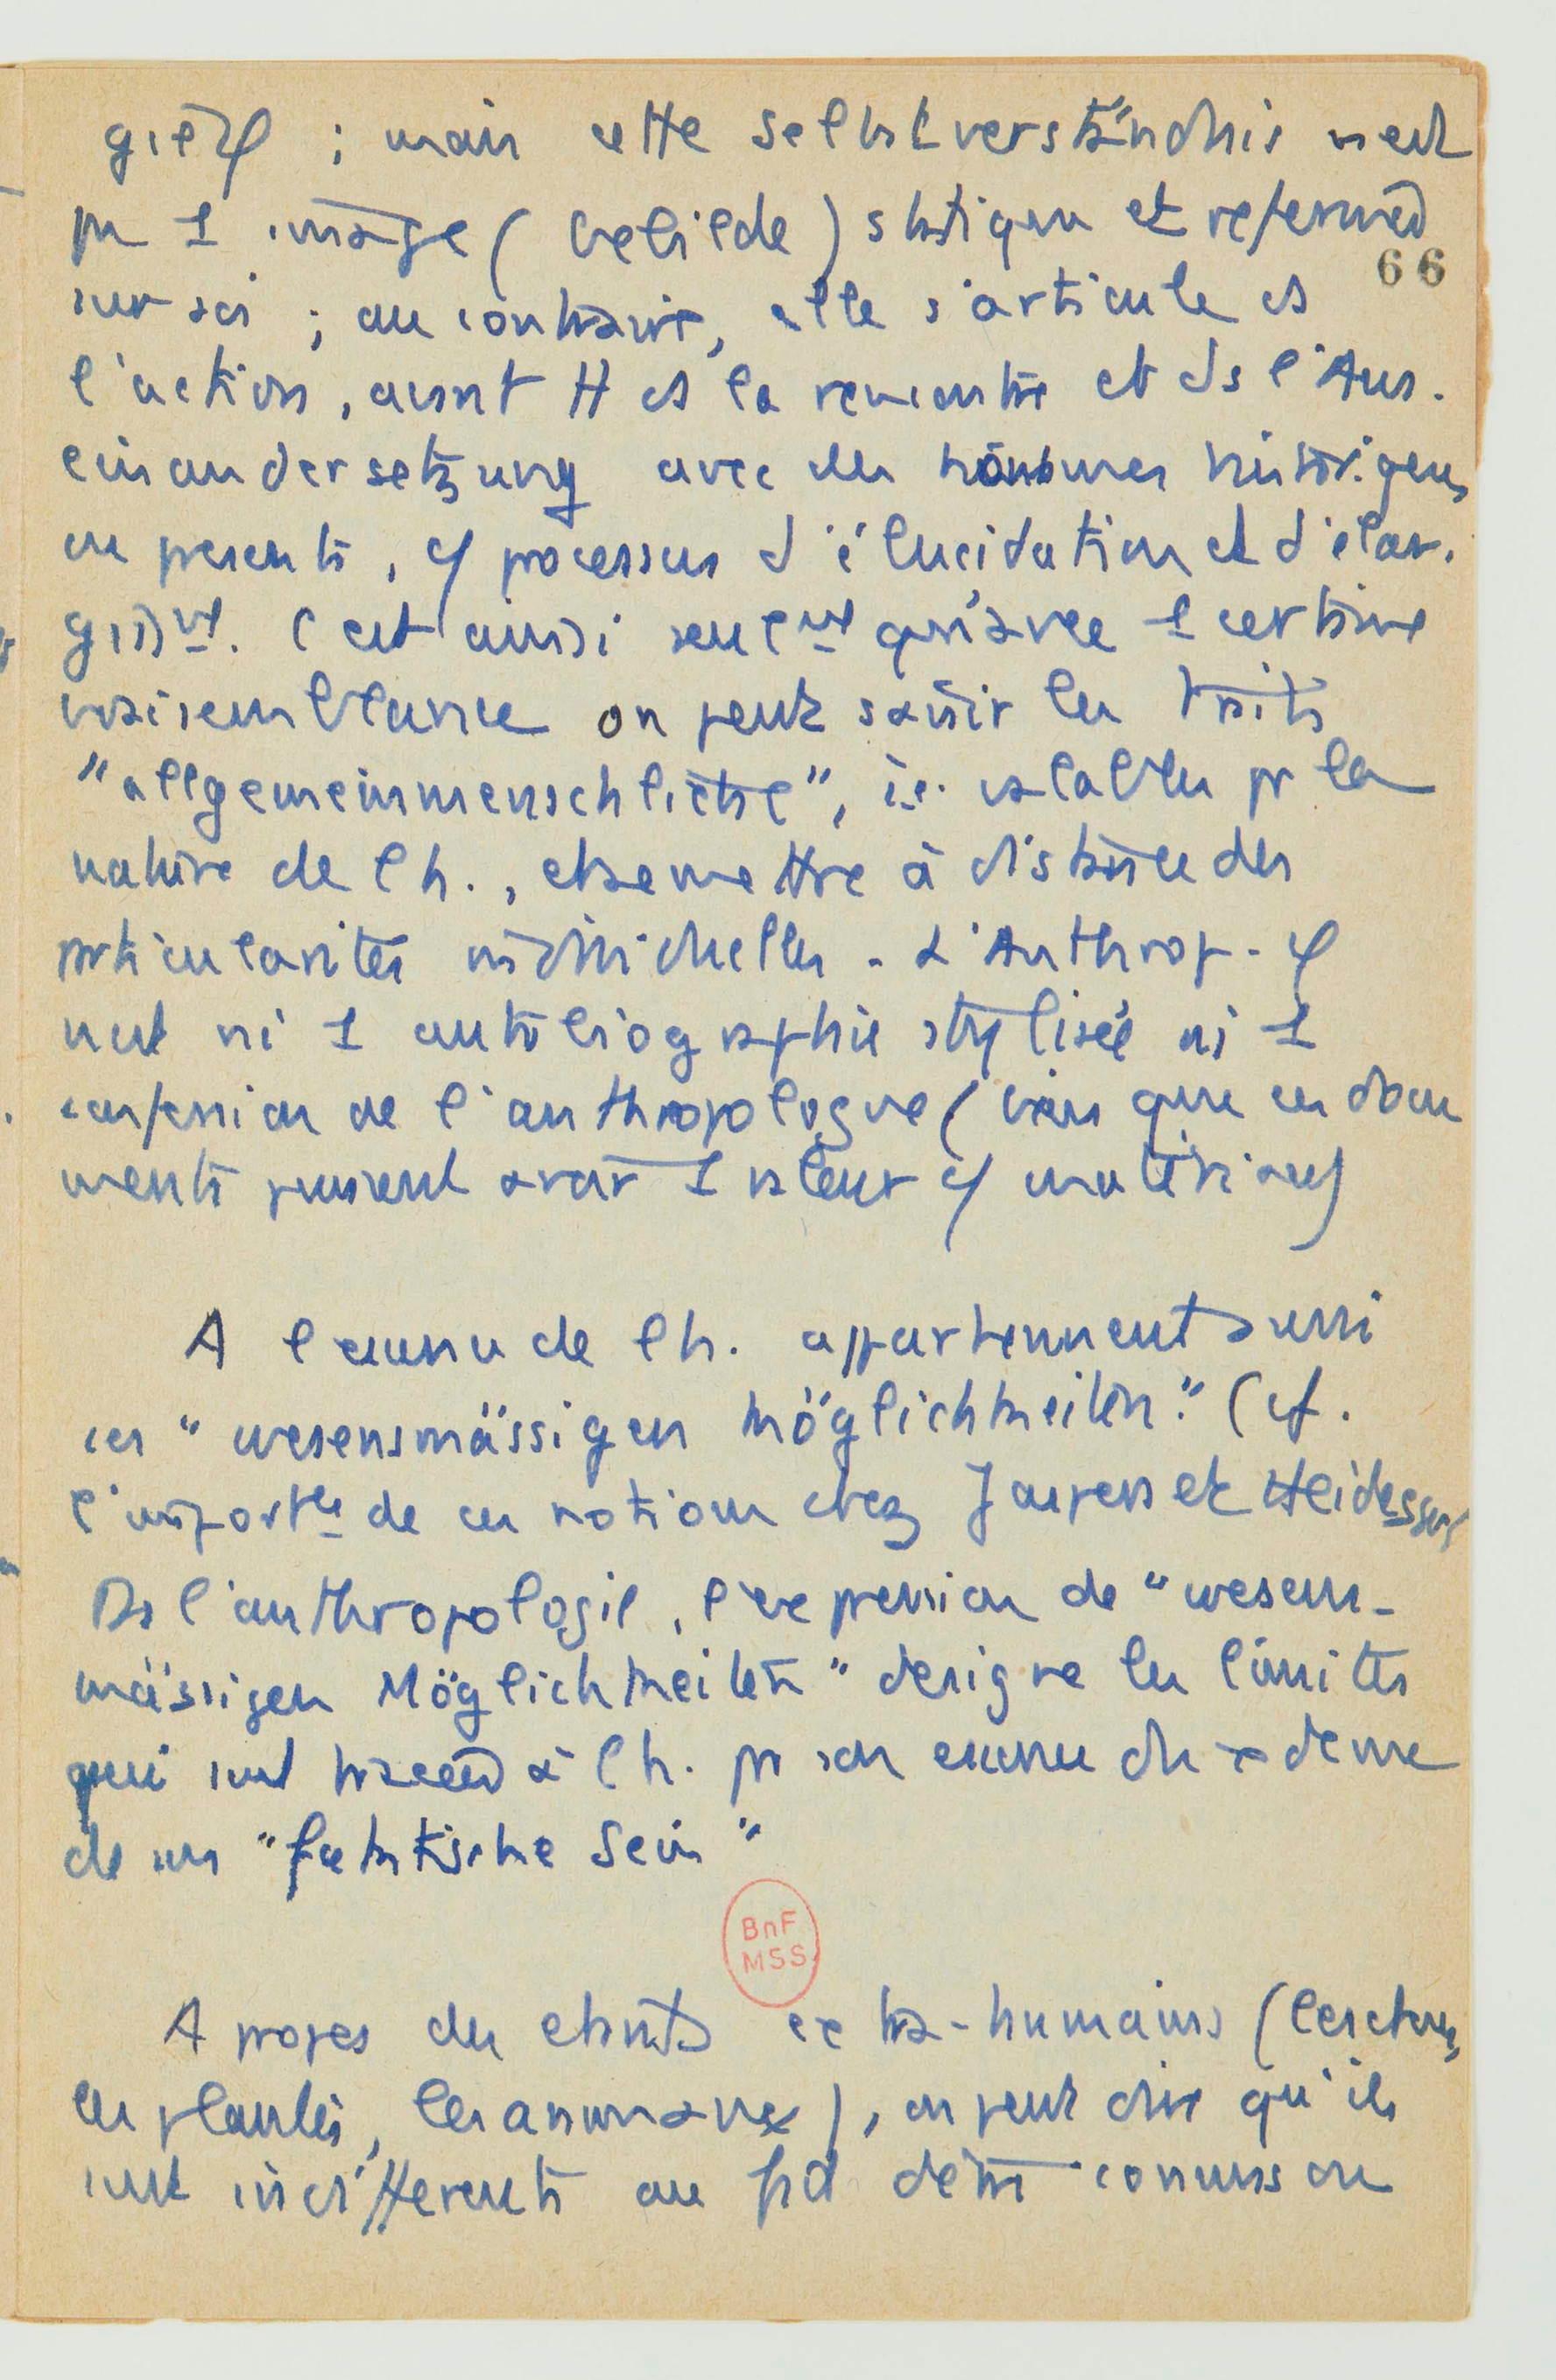 gie φ ; mais cette Selbstverständnis n'est
pas 1 image (Gebilde) statique et refermée
66
sur soi ; au contraire, elle s'articule ds
l'action, avant tt ds la rencontre et ds l'Aus-
einandersetzung avec des hommes historiques
ou présents, cf processus d'élucidation et d'élar-
gissmt. C'est ainsi seulmt qu'avec 1 certaine
vraisemblance on peut saisir les traits
"allgemeinmenschliche", i.e. valables pr la
nature de l'h., et se mettre à distance des
particularités individuelles. L'Anthrop. φ
n'est ni 1 autobiographie stylisée ni 1
confession de l'anthropologue (bien que ces docu
ments puissent avoir 1 valeur cf matériau)
A l'essence de l'h. appartiennent aussi
ces "wesensmässigen Möglichkeiten" (cf.
l'importce de ces notions chez Jaspers et Heidegger)
Ds l'anthropologie, l'expression de "wesens-
mässigen Möglichkeiten" désigne les limites
qui sont tracées à l'h. pr son essence au dedans
de son "faktische Sein"
BnF
MSS
A propos des etants extra-humains (les choses,
les plantes, les animaux), on peut dire qu'ils
sont indifférents au fait d'être connus ou